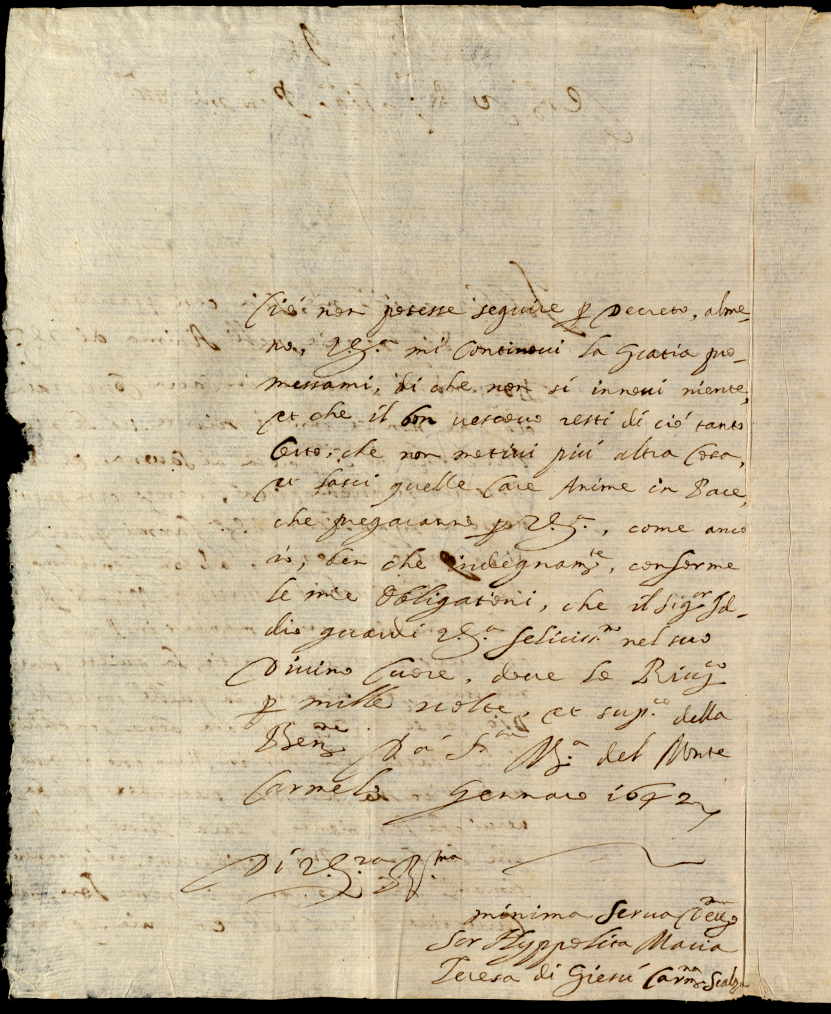 Ciò non potesse seguire p Decreto, alme-
no, V.S.ª mi Continoui la Gratia pro-
messami, di che non si innoui niente,
et che il bon uescouo resti di ciò tanto
Certo, che non metini più altra Cosa,
et lasci quelle Care Anime in Pace,
che pregaranno p V.S.ª, come anco
io, ben che indegnam.te, conforme
le mie Obligationi, che il Sig.or Id-
dio guardi V.S.ª feliciss.mo nel suo
Diuino Cuore, doue la Riug.co
p mille uolte, et sup.co della
Ben.ne Da S.ta M.ª del Monte
Carmelo Gennaro 1642
Di V.S.ra R.ma
minima Serua
Sor Hyppolita Maria
Teresa di Giesù Carm.na Scalza